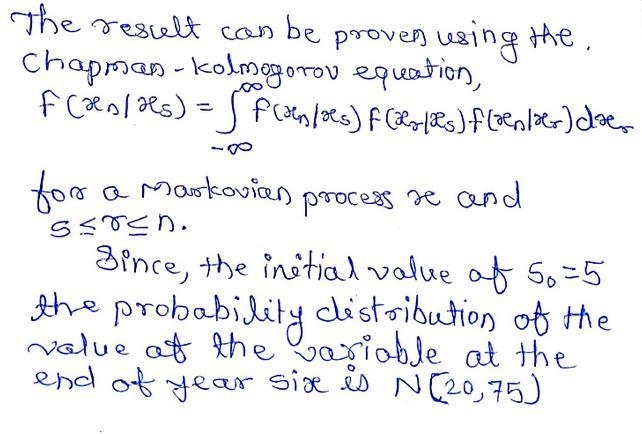 The result can be proven using the.
Chapman-kolmogorov equation,
∞
f(xn/xs) = ∫ f(xn/xs) f(xr/xs) f(xn/xr) dxr
-∞
for a Markovian process x and
s ≤ r ≤ n.
Since, the initial value of S₀ = 5
the probability distribution of the
value of the variable at the
end of year six is N(20,75)